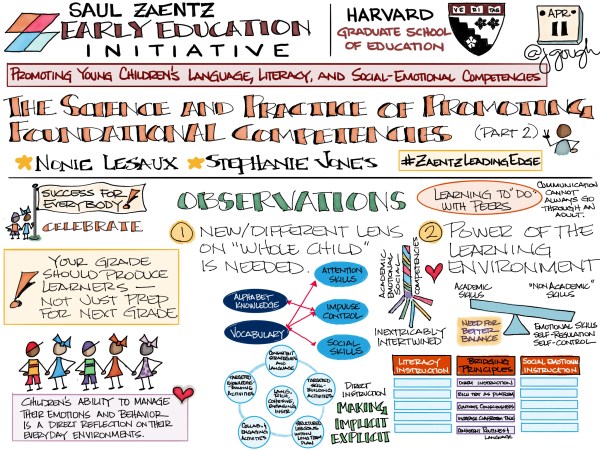 SAUL ZAENTZ
EARLY EDUCATION
INITIATIVE
HARVARD
GRADUATE SCHOOL
OF EDUCATION
VE RI TAS
APR
11
@jgough
PROMOTING YOUNG CHILDREN'S LANGUAGE, LITERACY, AND SOCIAL-EMOTIONAL COMPETENCIES
THE SCIENCE AND PRACTICE OF PROMOTING
FOUNDATIONAL COMPETENCIES (PART 2)
NONIE LESAUX STEPHANIE JONES
#ZAENTZLEADINGEDGE
SUCCESS FOR
EVERYBODY!
CELEBRATE
OBSERVATIONS
LEARNING TO "DO"
WITH PEERS
COMMUNICATION
CANNOT
ALWAYS GO
THROUGH AN
ADULT.
YOUR GRADE
SHOULD PRODUCE
LEARNERS —
NOT JUST PREP
FOR NEXT GRADE
!
CHILDREN'S ABILITY TO MANAGE
THEIR EMOTIONS AND BEHAVIOR
IS A DIRECT REFLECTION ON THEIR
EVERYDAY ENVIRONMENTS.
1 NEW/DIFFERENT LENS
ON "WHOLE CHILD"
IS NEEDED.
ALPHABET
KNOWLEDGE
VOCABULARY
ATTENTION
SKILLS
IMPULSE
CONTROL
SOCIAL
SKILLS
ACADEMIC
EMOTIONAL
SOCIAL
COMPETENCIES
INEXTRICABLY
INTERTWINED
2 POWER OF THE
LEARNING
ENVIRONMENT
ACADEMIC
SKILLS
"NON ACADEMIC"
SKILLS
NEED FOR
BETTER
BALANCE
EMOTIONAL SKILLS
SELF-REGULATION
SELF-CONTROL
CONSISTENT
STRATEGIES
AND
LANGUAGE
TARGETED
KNOWLEDGE-
BUILDING
ACTIVITIES
TARGETED
SKILL-
BUILDING
ACTIVITIES
LONG,
RICH,
COHESIVE,
ENGAGING
COLLAB &
ENGAGING
ACTIVITIES
STRUCTURED
LESSONS
WITHIN
LONG TERM
PLAN
DIRECT
INSTRUCTION
MAKING
IMPLICIT
EXPLICIT
LITERACY
INSTRUCTION
BRIDGING
PRINCIPLES
SOCIAL EMOTION
INSTRUCTION
DIRECT INSTRUCTION
RICH TEXT AS PLATFORM
INCREASE CLASSROOM TALK
CONSISTENT ROUTINES &
LANGUAGE